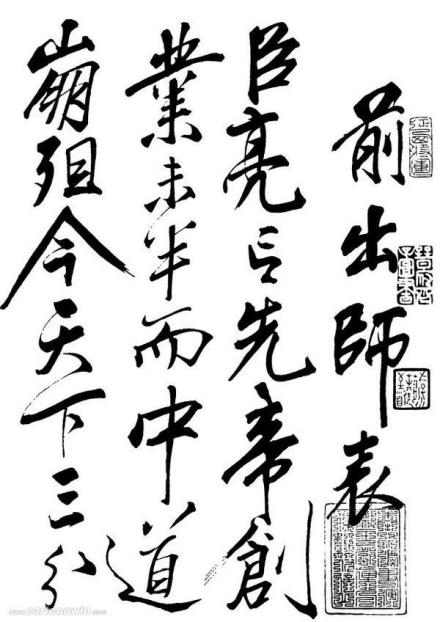 前出師表
臣亮言先帝創
業未半而中道
崩殂今天下三分
www.cartoonwin.com